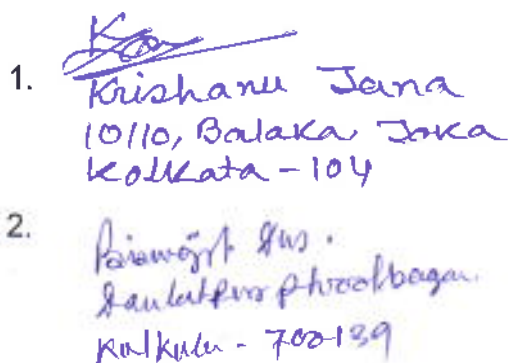 1.
Krishanu Jana
10/10, Balaka, Joka
Kolkata - 104
2.
Biswajit Das.
Daulatpur phoolbagan.
Kolkata - 700139